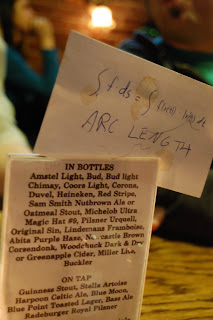 ∫ f ds = ∫ f(x(t),
ARC LENGTH
IN BOTTLES
Amstel Light, Bud, Bud light
Chimay, Coors Light, Corona,
Duvel, Heineken, Red Stripe,
Sam Smith Nutbrown Ale or
Oatmeal Stout, Michelob Ultra
Magic Hat #9, Pilsner Urquell,
Original Sin, Lindemans Framboise,
Abita Purple Haze, Newcastle Brown
Corsendonk, Woodchuck Dark & Dry
or Greenapple Cider, Miller Lite,
Buckler
ON TAP
Guinness Stout, Stella Artoise
Harpoon Celtic Ale, Blue Moon,
Blue Point Toasted Lager, Bass Ale
Radeburger Royal Pilsner